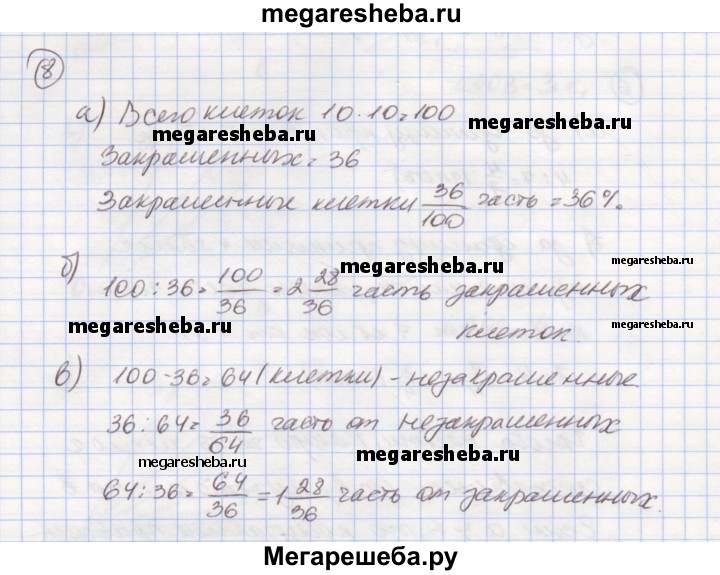 megaresheba.ru
8
а) Всего клеток 10 · 10 = 100
megaresheba.ru megaresheba.ru
Закрашенных = 36
Закрашенные клетки 36/100 часть = 36%.
megaresheba.ru
б) 100 : 36 = 100/36 = 2 28/36 часть закрашенных
megaresheba.ru
клеток.
в) 100 - 36 = 64 (клетки) - незакрашенные
36 : 64 = 36/64 часть от незакрашенных
megaresheba.ru megaresheba.ru
64 : 36 = 64/36 = 1 28/36 часть от закрашенных.
Мегарешеба.ру